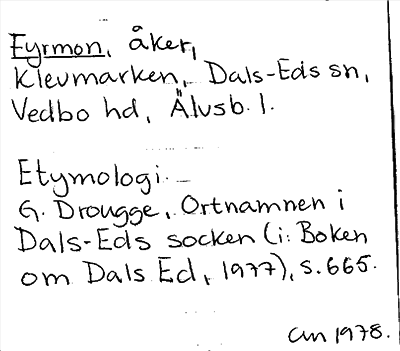 Fyrmon, åker,
Klevmarken, Dals-Eds sn,
Vedbo hd, Älvsb. l.
Etymologi.
G. Drougge, Ortnamnen i
Dals-Eds socken (i: Boken
om Dals Ed, 1977), s. 665.
1978.